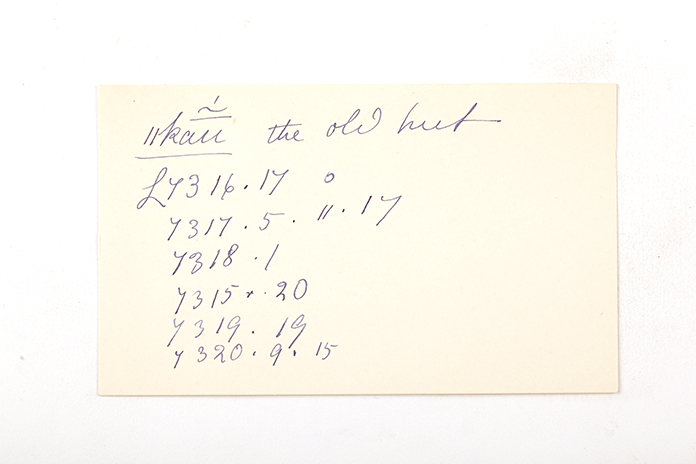 ǁkau̴̅́ the old hut
L7316.17 o
7317.5.11.17
7318.1
7315+.20
7319.19
7320.9.15